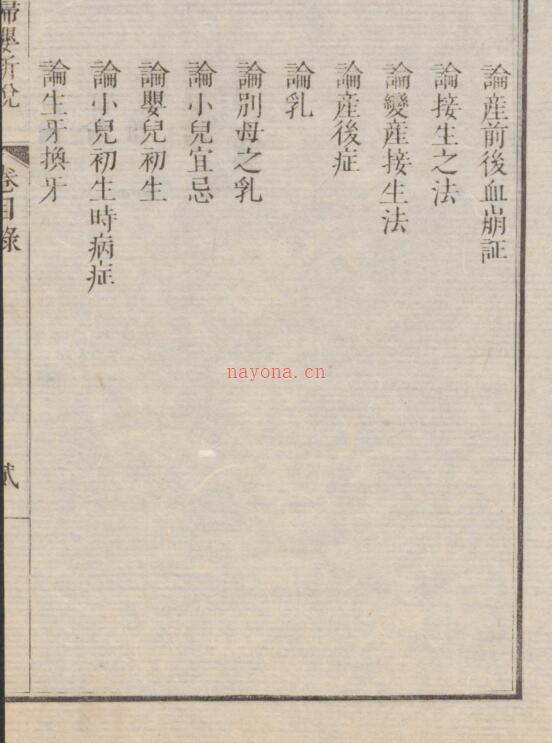 論産前後血崩証
論接生之法
論變産接生法
論産後症
論乳
論別母之乳
論小兒宜忌
論嬰兒初生
論小兒初生時病症
論生牙換牙
婦嬰新說
卷目錄
貳
nayona.cn